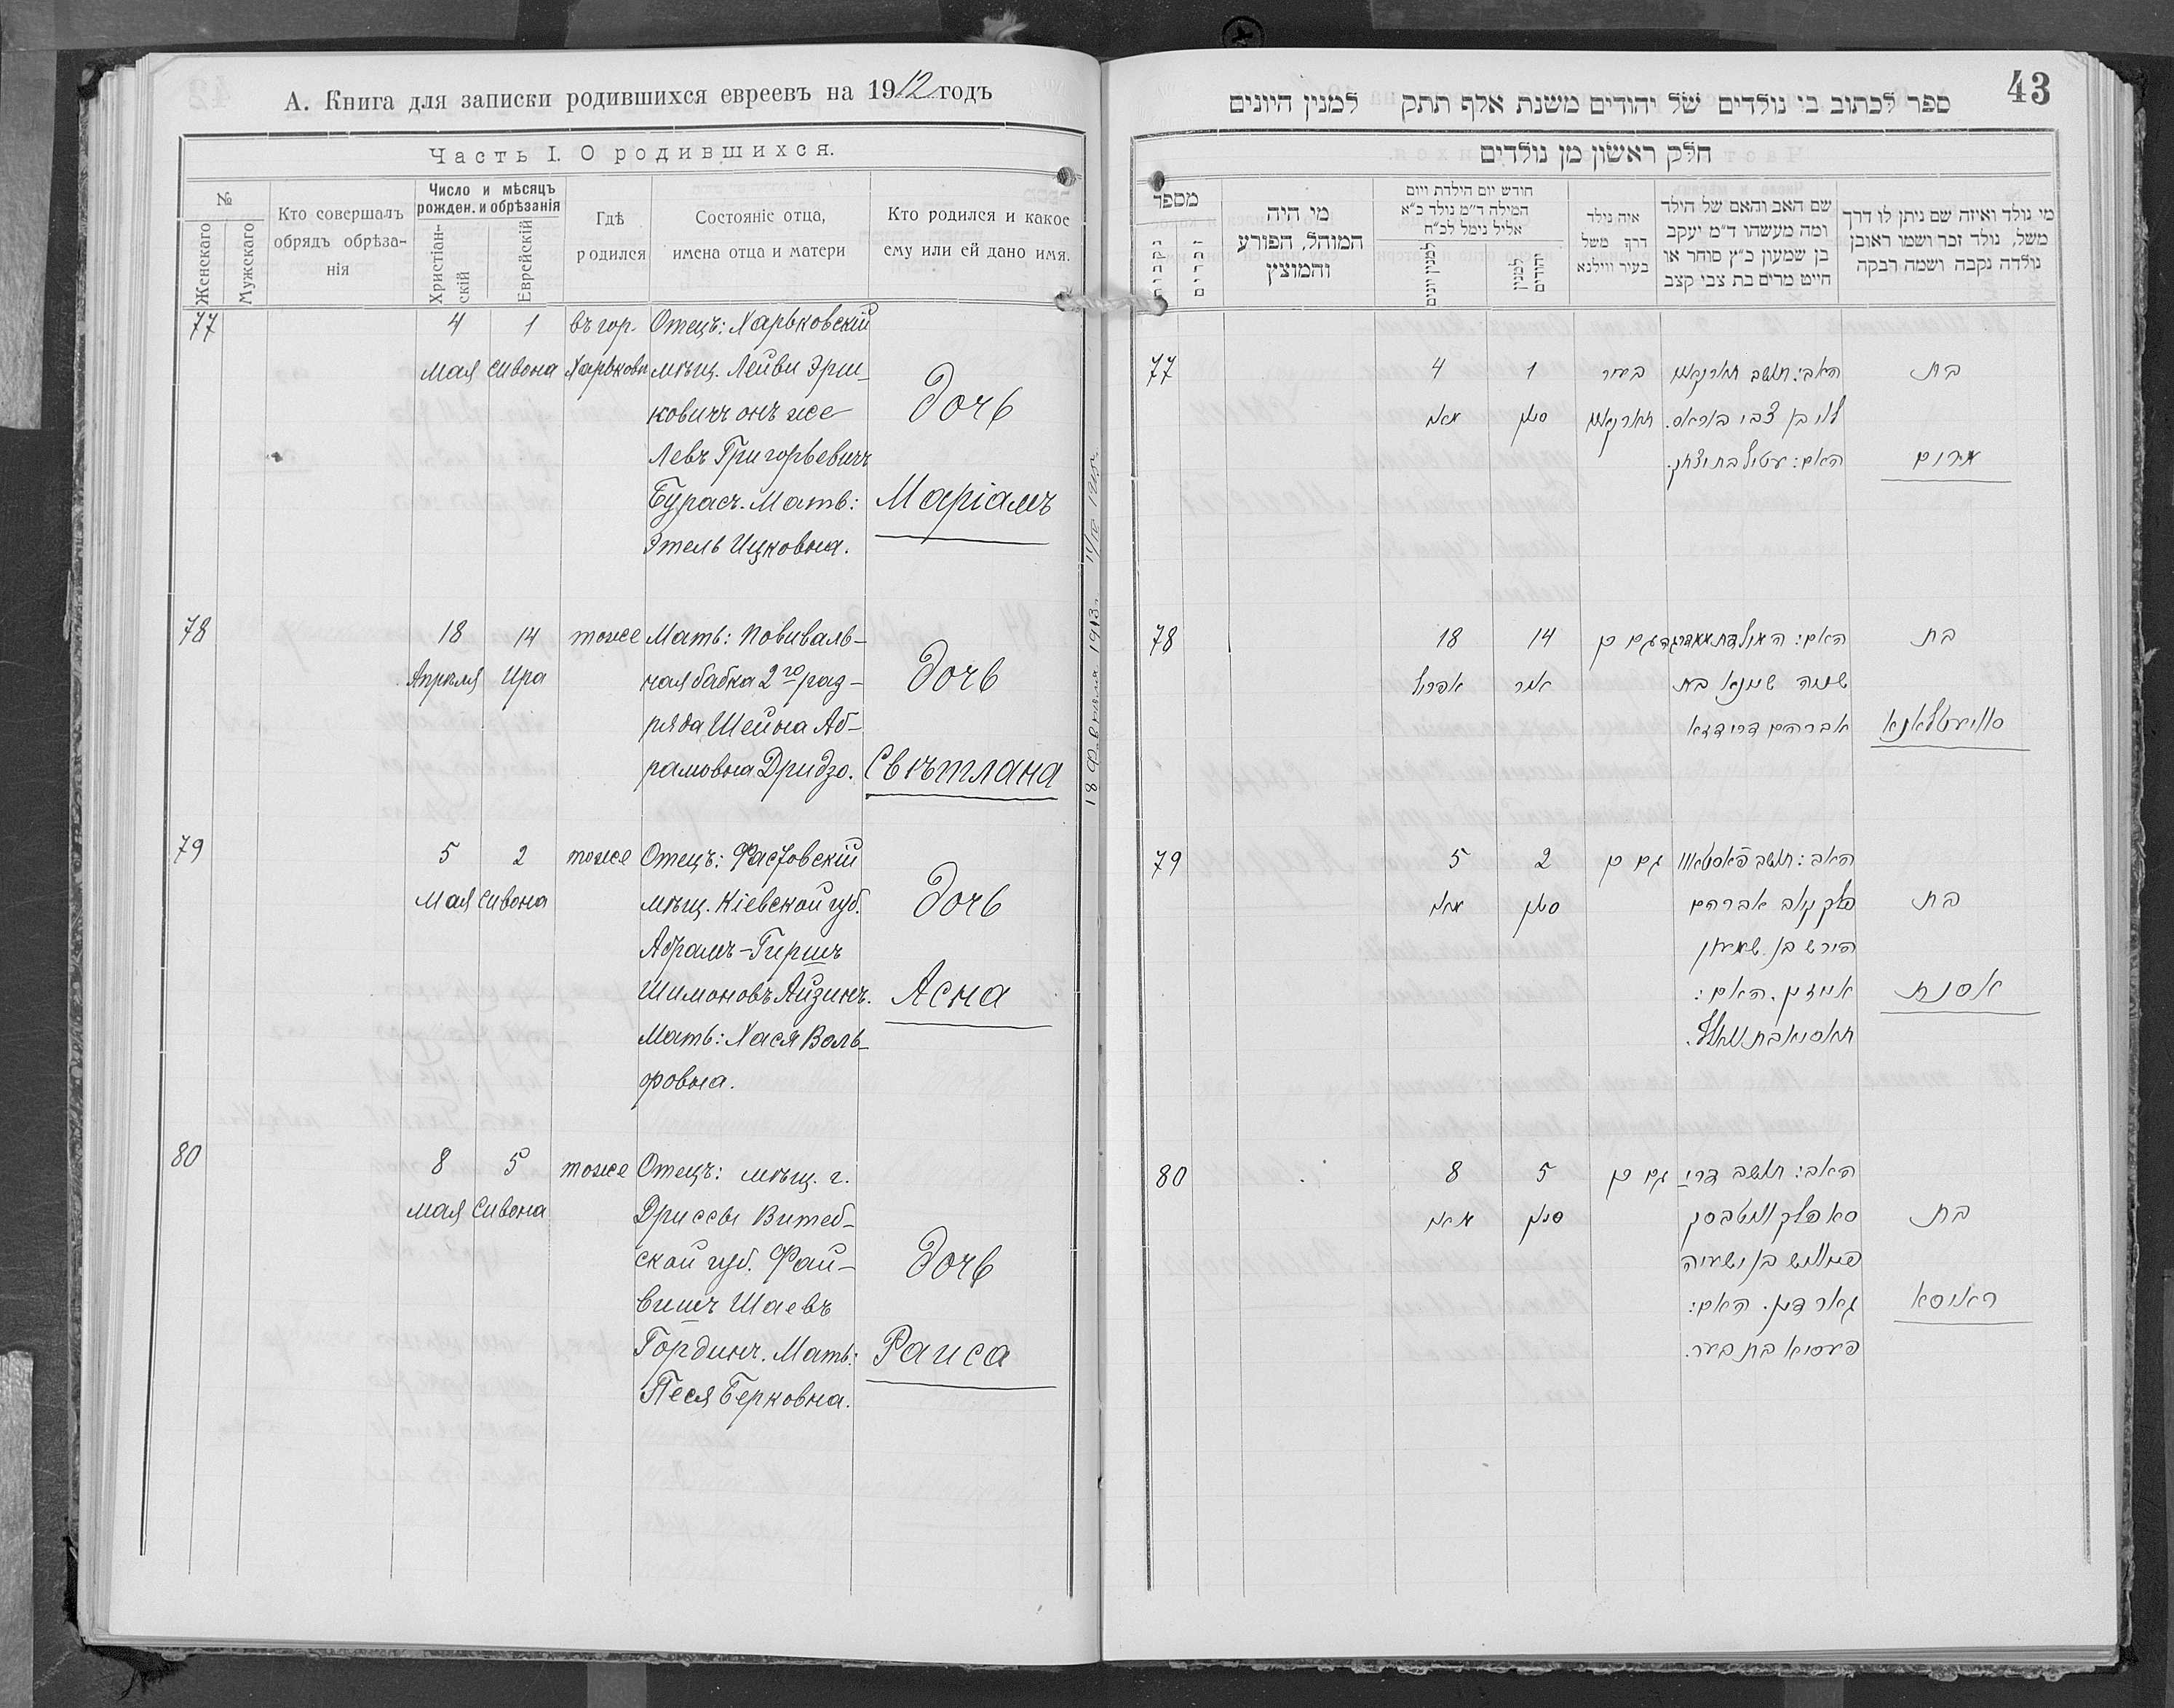 А. Книга для записки родившихся евреевъ на 1912 годъ
Часть I. О родившихся.
№
Женскаго
Мужскаго
Кто совершалъ
обрядъ обрѣза-
нія
Число и мѣсяцъ
рожден. и обрѣзанія
Христіан-
скій
Еврейскій
Гдѣ
родился
Состояніе отца,
имена отца и матери
Кто родился и какое
ему или ей дано имя.
77
4
Мая
1
Сивона
въ гор.
Харьковѣ
Отецъ: Харьковскій
мѣщ. Лейви Эрш-
ковичъ онъ же
Левъ Григорьевичъ
Бурасъ. Мать:
Этель Ицковна.
Дочь
Маріамъ
78
18
Апрѣля
14
Ира
тоже
Мать: Повиваль-
ная бабка 2го раз-
ряда Шейна Аб-
рамовна Дридзо.
Дочь
Свѣтлана
79
5
Мая
2
Сивона
тоже
Отецъ: Фастовскій
мѣщ. Кіевской губ.
Абрамъ-Гиршъ
Шимоновъ Айзинъ.
Мать: Хася Воль-
фовна.
Дочь
Асна
80
8
Мая
5
Сивона
тоже
Отецъ: мѣщ. г.
Дриссы Витеб-
ской губ. Фай-
вишъ Шаевъ
Гординъ. Мать:
Песя Берковна.
Дочь
Раиса
18 Февраля 1913г.
43
ספר לכתוב בי נולדים של יהודים משנת אלף תתק למנין היונים
חלק ראשון מן נולדים
מספר
נקבות
זכרים
מי היה
המוהל, הפורע
והמוצץ
חודש יום הילדת ויום
המילה ד״מ נולד כ״א
אליל נימל לכ״ח
למנין יונים
למנין
יהודים
איה נולד
דרך משל
בעיר ווילנא
שם האב והאם של הילד
ומה מעשהו ד״מ יעקב
בן שמעון כ״ץ סוחר או
חייט מרים בת צבי קצב
מי נולד ואיזה שם ניתן לו דרך
משל, נולד זכר ושמו ראובן
נולדה נקבה ושמה רבקה
77
4
מאי
1
סיון
בעיר
חארקאוו
האב: תושב חארקאוו
לוי בן צבי בוראס.
האם: עטיל בת יצחק.
בת
מרים
78
18
אפריל
14
אייר
גם כן
שיינא בת
אברהם דרידזא
בת
סוויעטלאנא
79
5
מאי
2
סיון
גם כן
האב: תושב פאסטאוו
פלך קיוב אברהם
הירש בן שמעון
אייזין. האם:
חאסיא בת וואלף.
בת
אסנת
80
8
מאי
5
סיון
גם כן
האב: תושב דרי-
סא פלך וויטבסק
פייוויש בן ישעיה
גארדין. האם:
פעסיא בת בער.
בת
ראיסא